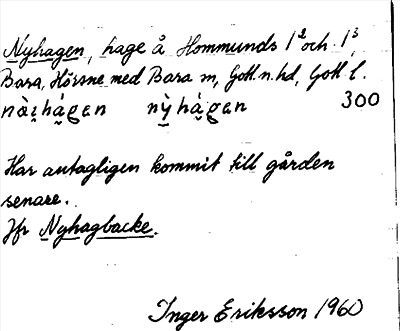 Nyhagen, hage å Hommunds 1² och 1³,
Bara, Hörsne med Bara sn, Gotl. n. hd, Gotl. l.
nàihágen nỳhágen 300
Har antagligen kommit till gården
senare.
Jfr Nyhagbacke.
Inger Eriksson 1960